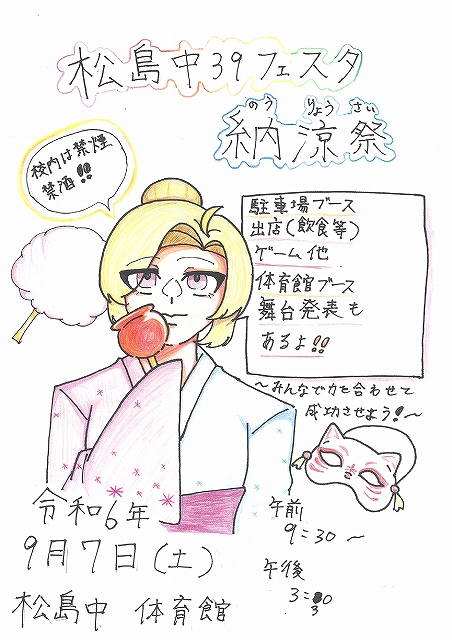 松島中39フェスタ
のうりょうさい
納涼祭
校内は禁煙
禁酒!!
駐車場ブース
出店(飲食等)
ゲーム他
体育館ブース
舞台発表も
あるよ!!
～みんなで力を合わせて
成功させよう!～
令和6年
9月7日(土)
松島中 体育館
午前
9:30～
午後
3:30